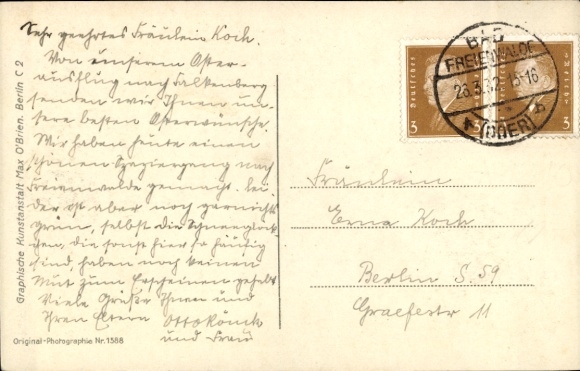 Sehr geehrtes Fräulein Koch.
Von unserem Oster-
ausflug nach Falkenberg
senden wir Ihnen un-
sere besten Osterwünsche.
Wir haben heute einen
schönen Spaziergang nach
Freienwalde gemacht. Lei-
der ist aber noch garnichts
grün, selbst die Schneeglöck-
chen, die sonst hier so häufig
sind, haben noch keinen
Mut zum Erscheinen gehabt.
Viele Grüße Ihnen und
Ihren Eltern
und Frau
Original-Photographie Nr. 1588
Graphische Kunstanstalt Max O'Brien. Berlin C 2
BAD
FREIENWALDE
26.3.32.15-16
(ODER) b
Deutsches
3
3
Fräulein
Erna Koch
Berlin S. 59
Graefestr 11